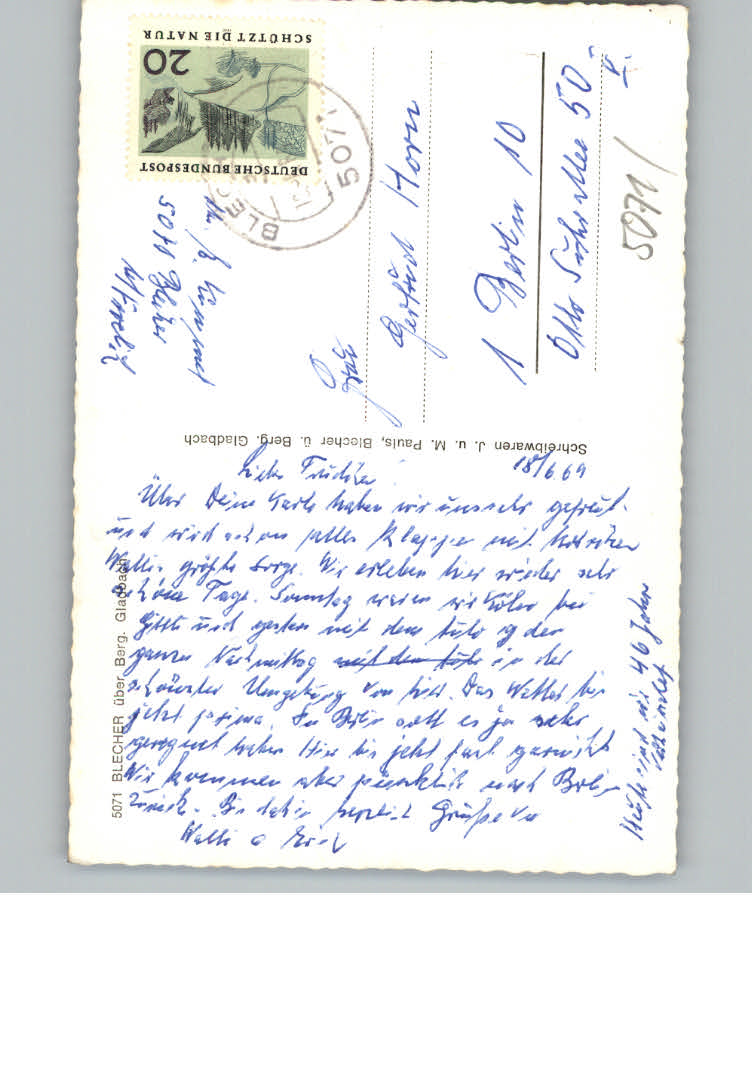 18/6.69
Liebe Trudchen!
Über Deine Karte haben wir uns sehr gefreut.
und wird schon alles klappen mit
Wallis größte Sorge. Wir erleben hier wieder sehr
schöne Tage. Sonntag waren wir Köln bei
und gestern mit dem Auto in der
ganzen Nachmittag mit dem Auto in der
schönsten Umgebung von hier. Das Wetter bis
jetzt prima. In Berlin soll es ja sehr
geregnet haben Hier bis jetzt fast garnicht
Wir kommen aber pünktlich nach Berlin
zurück. Bis dahin herzlich Grüße von
Walli u Erich
Heute sind wir 46 Jahre
verheiratet
5071 BLECHER über Berg. Gladbach
Schreibwaren J. u. M. Pauls, Blecher ü. Berg. Gladbach
DEUTSCHE BUNDESPOST
20
SCHÜTZT DIE NATUR
5071
BLECHER
5071 Blecher
Frau
Gertrud Horn
1 Berlin 10
Otto Suhr Allee 50
V.
5071/